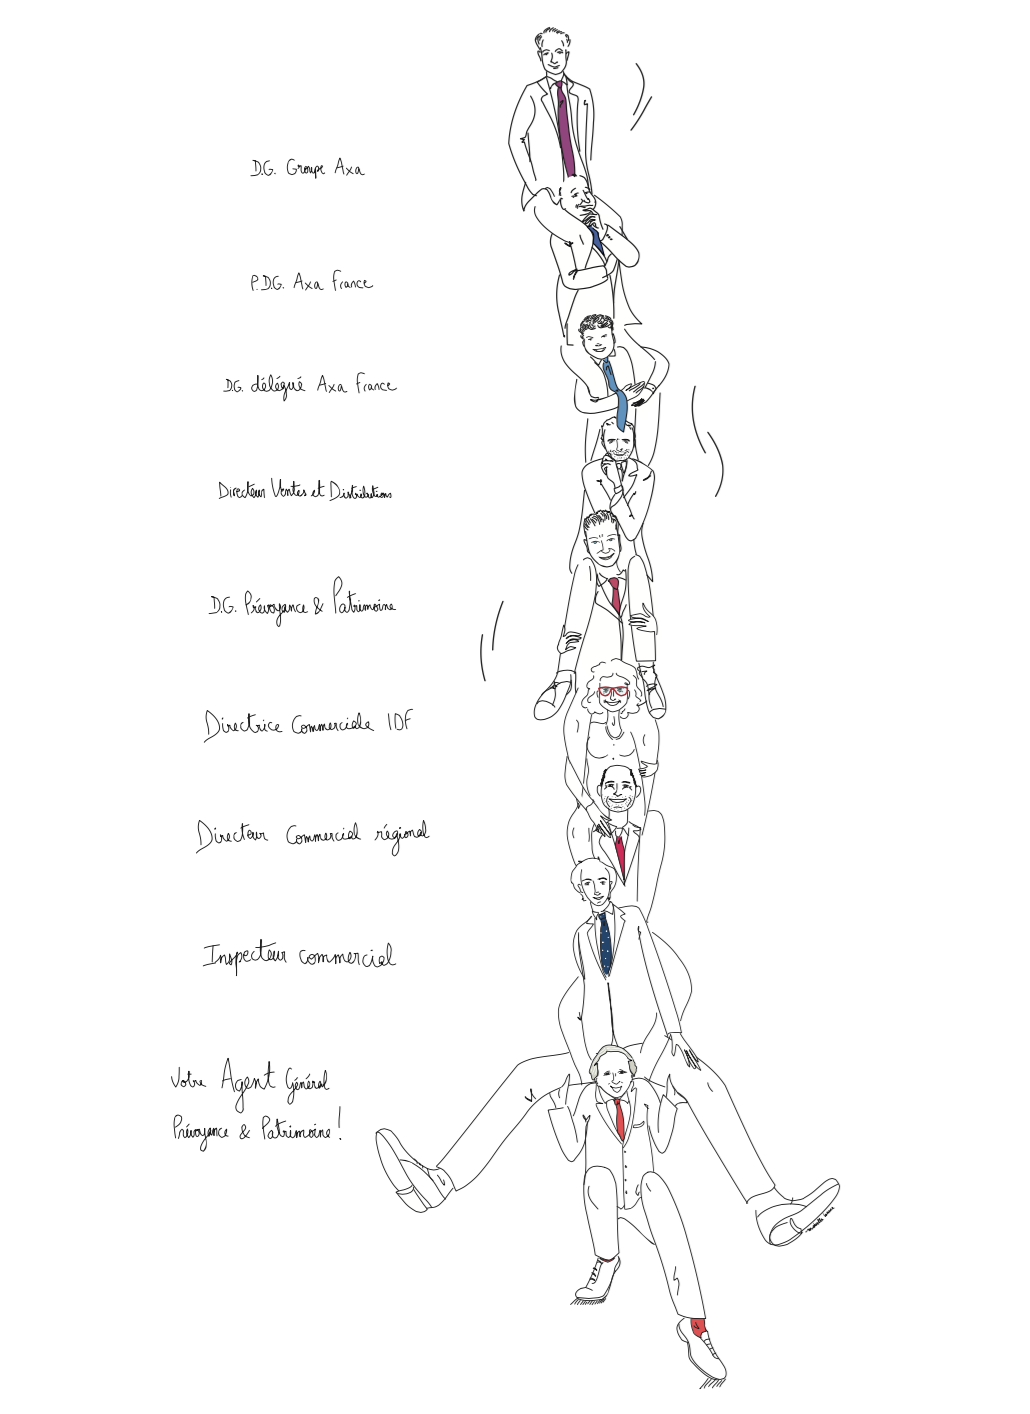 D.G. Groupe Axa
P.D.G. Axa France
D.G. délégué Axa France
Directeur Ventes et Distributions
D.G. Prévoyance & Patrimoine
Directrice Commerciale IDF
Directeur Commercial régional
Inspecteur commercial
Votre Agent Général
Prévoyance & Patrimoine !